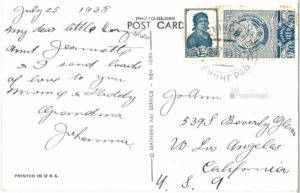 July 25 1938
My dear little
Aunt Jeannette
& I send loads
of love to you
Mama & Daddy
Grandma
Johanna
PRINTED IN U.S.A.
PHOTO-GLOBE
POST CARD
NEW YORK
JoAnn
539 S Beverly Glen
W Los Angeles
California
U. S. A